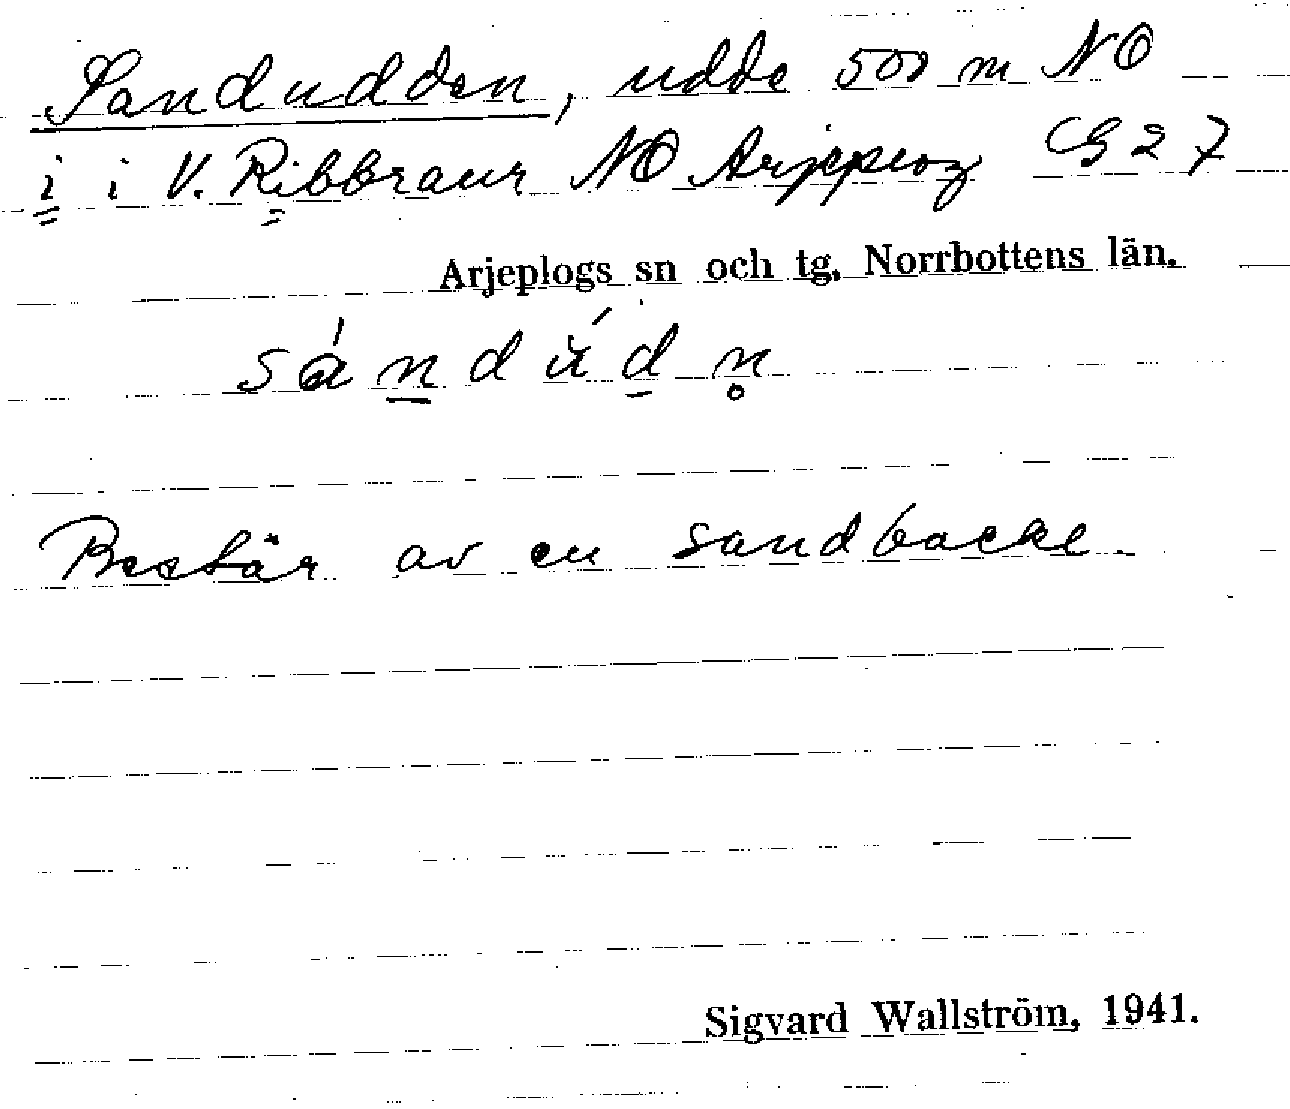 Sandudden, udde 500 m NO
i i V. Ribbraur NO Arjeplog G 2 7
Arjeplogs sn och tg, Norrbottens län.
sándúdn̥
Består av en sandbacke.
Sigvard Wallström, 1941.